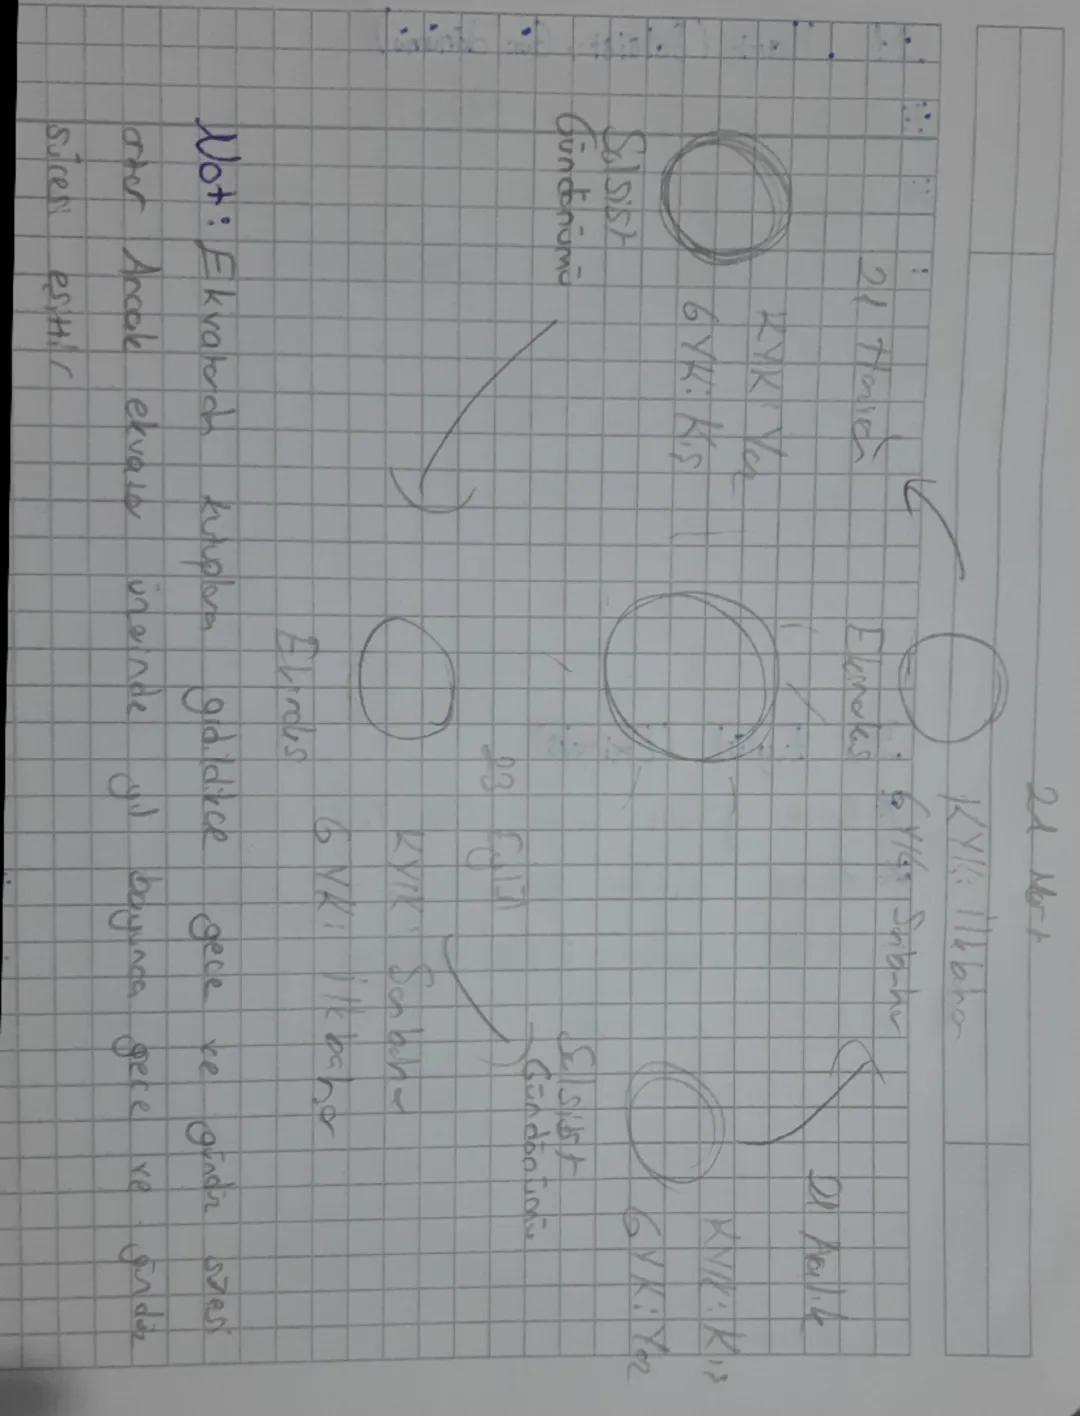 21 Mart
KYK: İlkbahar
GYK: Sonbahar
Ekinoks
21 Haziran
KYK: Yaz
GYK: Kış
Solsist
Gündönümü
21 Aralık
KYK: Kış
GYK: Yaz
Solsist
Gündönümü
23 Eylül
KYK: Sonbahar
GYK: İlkbahar
Ekinoks
Not: Ekvatordan kutuplara gidildikçe gece ve gündüz süresi
artar Ancak ekvator üzerinde yıl boyunca gece ve gündüz
süresi eşittir